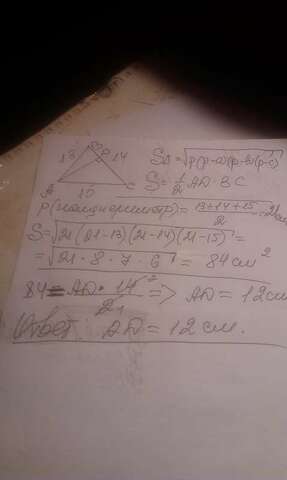 B
D
13 14
S△ = √p(p-a)(p-b)(p-c)
A 15 C
S = 1/2 AD · BC
P (полупериметр) = 13+14+15 / 2 = 21 см
S = √21(21-13)(21-14)(21-15) =
= √21 · 8 · 7 · 6 = 84 см²
84 = AD · 14 / 2 => AD = 12 см
Ответ AD = 12 см.